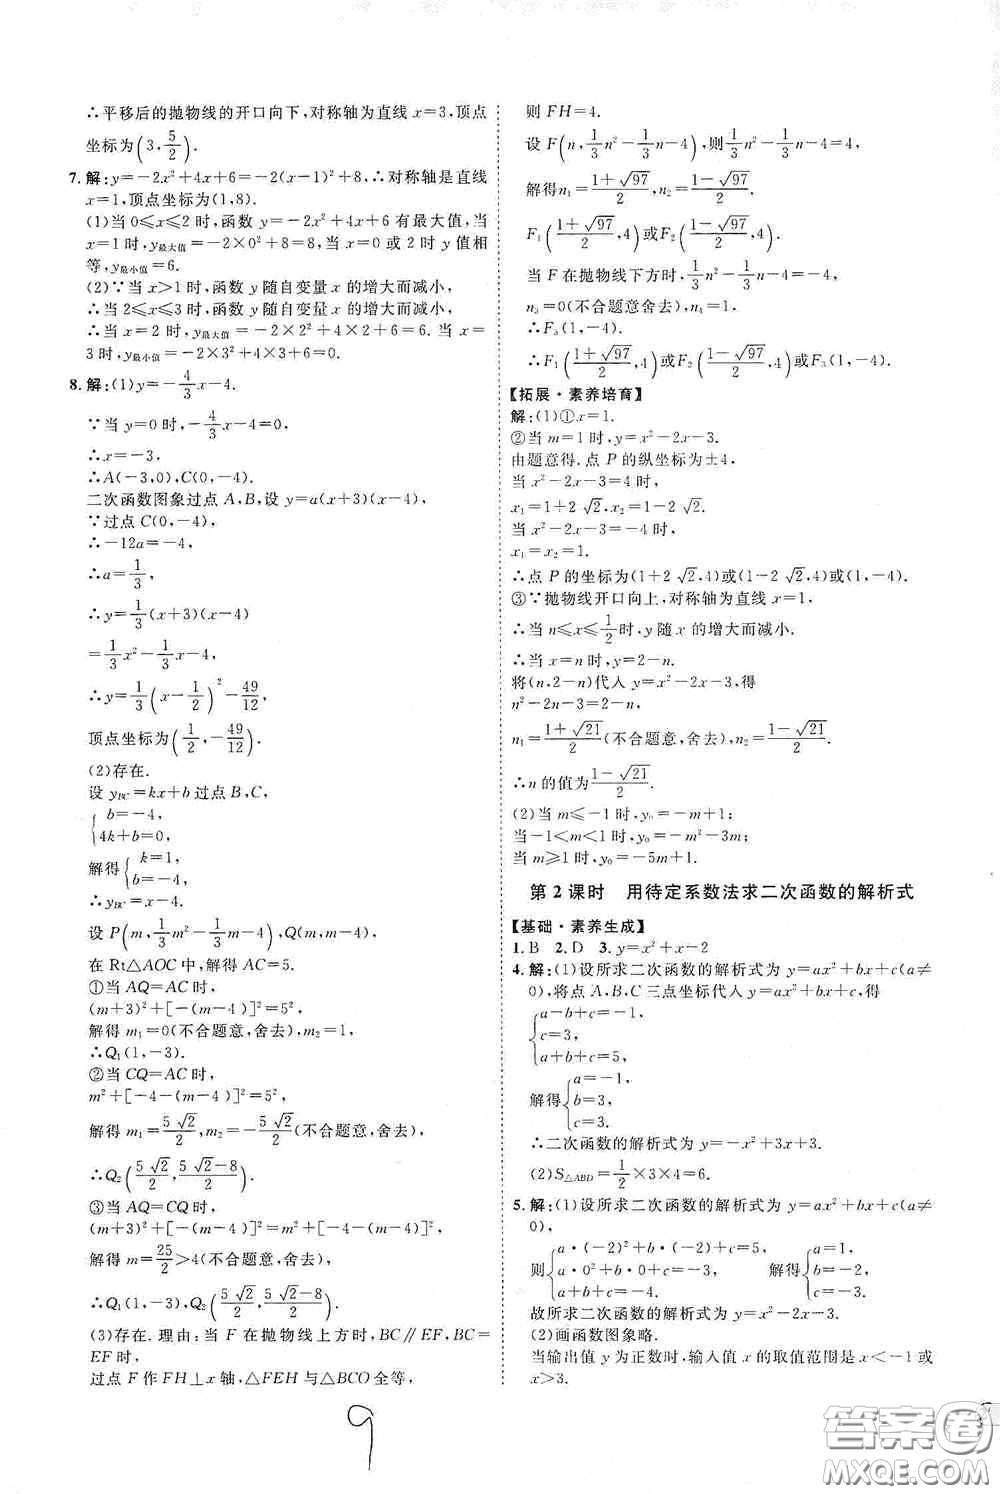 ∴平移后的抛物线的开口向下,对称轴为直线 x=3,顶点
坐标为(3,5/2).
7.解:y=-2x²+4x+6=-2(x-1)²+8,∴对称轴是直线
x=1,顶点坐标为(1,8).
(1)当 0≤x≤2 时,函数 y=-2x²+4x+6 有最大值,当
x=1 时,y最大值=-2×0²+8=8;当 x=0 或 2 时 y 值相
等,y最小值=6.
(2)∵当 x>1 时,函数 y 随自变量 x 的增大而减小,
∴当 2≤x≤3 时,函数 y 随自变量 x 的增大而减小,
∴当 x=2 时,y最大值=-2×2²+4×2+6=6. 当 x=
3 时,y最小值=-2×3²+4×3+6=0.
8.解:(1)y=-4/3x-4.
∵当 y=0 时,-4/3x-4=0.
∴x=-3.
∴A(-3,0),C(0,-4).
二次函数图象过点 A,B,设 y=a(x+3)(x-4),
∵过点 C(0,-4),
∴-12a=-4,
∴a=1/3,
∴y=1/3(x+3)(x-4)
=1/3x²-1/3x-4,
∴y=1/3(x-1/2)²-49/12,
顶点坐标为(1/2,-49/12).
(2)存在.
设 yBC=kx+b 过点 B,C,
{b=-4,
4k+b=0,
解得{k=1,
b=-4.
∴yBC=x-4.
设 P(m,1/3m²-1/3m-4),Q(m,m-4),
在 Rt△AOC 中,解得 AC=5.
①当 AQ=AC 时,
(m+3)²+[-(m-4)]²=5²,
解得 m₁=0(不合题意,舍去),m₂=1,
∴Q₁(1,-3).
②当 CQ=AC 时,
m²+[-4-(m-4)]²=5²,
解得 m₁=5√2/2,m₂=-5√2/2(不合题意,舍去),
∴Q₂(5√2/2,5√2-8/2).
③当 AQ=CQ 时,
(m+3)²+[-(m-4)]²=m²+[-4-(m-4)]²,
解得 m=25/2>4(不合题意,舍去),
∴Q₁(1,-3),Q₂(5√2/2,5√2-8/2)
(3)存在.理由:当 F 在抛物线上方时,BC∥EF,BC=
EF 时,
过点 F 作 FH⊥x 轴,△FEH 与△BCO 全等,
9
则 FH=4.
设 F(n,1/3n²-1/3n-4),则1/3n²-1/3n-4=4.
解得 n₁=1+√97/2,n₂=1-√97/2.
F₁(1+√97/2,4)或 F₂(1-√97/2,4).
当 F 在抛物线下方时,1/3n²-1/3n-4=-4.
n₃=0(不合题意舍去),n₄=1.
∴F₃(1,-4).
∴F₁(1+√97/2,4)或 F₂(1-√97/2,4)或 F₃(1,-4).
【拓展·素养培育】
解:(1)①x=1.
②当 m=1 时,y=x²-2x-3.
由题意得.点 P 的纵坐标为±4.
当 x²-2x-3=4 时,
x₁=1+2√2,x₂=1-2√2.
当 x²-2x-3=-4 时,
x₁=x₂=1.
∴点 P 的坐标为(1+2√2,4)或(1-2√2,4)或(1,-4).
③∵抛物线开口向上,对称轴为直线 x=1,
∴当 n≤x≤1/2时,y 随 x 的增大而减小.
∴当 x=n 时,y=2-n.
将(n,2-n)代入 y=x²-2x-3,得
n²-2n-3=2-n,
n₁=1+√21/2(不合题意,舍去),n₂=1-√21/2.
∴n 的值为1-√21/2.
(2)当 m≤-1 时,y₀=-m+1;
当-1<m<1 时,y₀=-m²-3m;
当 m≥1 时,y₀=-5m+1.
第 2 课时 用待定系数法求二次函数的解析式
【基础·素养生成】
1.B 2.D 3.y=x²+x-2
4.解:(1)设所求二次函数的解析式为 y=ax²+bx+c(a≠
0),将点 A、B、C 三点坐标代入 y=ax²+bx+c,得
{a-b+c=-1,
c=3,
a+b+c=5,
解得{a=-1,
b=3,
c=3.
∴二次函数的解析式为 y=-x²+3x+3.
(2)S△ABD=1/2×3×4=6.
5.解:(1)设所求二次函数的解析式为 y=ax²+bx+c(a≠
0),
则{a·(-2)²+b·(-2)+c=5, a·0²+b·0+c=-3, a+b+c=-4, 解得{a=1, b=-2, c=-3.
故所求二次函数的解析式为 y=x²-2x-3.
(2)画函数图象略.
当输出值 y 为正数时,输入值 x 的取值范围是 x<-1 或
x>3.
答案圈
MXQE.COM